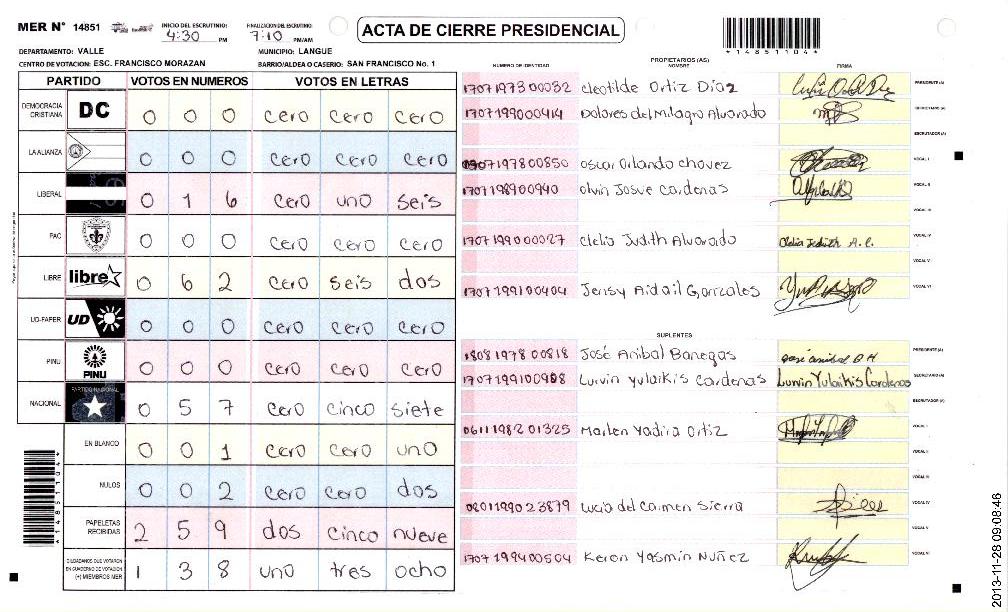 MER N° 14851
INICIO DEL ESCRUTINIO: 4:30 PM
FINALIZACION DEL ESCRUTINIO: 7:10 PM/AM
ACTA DE CIERRE PRESIDENCIAL
14851104
DEPARTAMENTO: VALLE
MUNICIPIO: LANGUE
CENTRO DE VOTACION: ESC. FRANCISCO MORAZAN
BARRIO/ALDEA O CASERIO: SAN FRANCISCO No. 1
PARTIDO VOTOS EN NUMEROS VOTOS EN LETRAS
DEMOCRACIA CRISTIANA DC 0 0 0 cero cero cero
LA ALIANZA 0 0 0 cero cero cero
LIBERAL 0 1 6 cero uno seis
PAC 0 0 0 cero cero cero
LIBRE libre 0 6 2 cero seis dos
UD-FAPER UD 0 0 0 cero cero cero
PINU PINU 0 0 0 cero cero cero
NACIONAL PARTIDO NACIONAL 0 5 7 cero cinco siete
EN BLANCO 0 0 1 cero cero uno
NULOS 0 0 2 cero cero dos
PAPELETAS RECIBIDAS 2 5 9 dos cinco nueve
CIUDADANOS QUE VOTARON EN CUADERNO DE VOTACION (+) MIEMBROS MER 1 3 8 uno tres ocho
14851104
PROPIETARIOS (AS)
NUMERO DE IDENTIDAD NOMBRE FIRMA
1707197300032 Cleotilde Ortiz Díaz PRESIDENTE (A)
1707199000414 Dolores del Milagro Alvarado SECRETARIO (A)
ESCRUTADOR (A)
0907197800850 Oscar Orlando Chavez VOCAL I
1707198900940 Olvin Josue Cardenas VOCAL II
VOCAL III
1707199000027 Clelia Judith Alvarado Clelia Judith A. C. VOCAL IV
VOCAL V
1707199100404 Jensy Aidail Gonzales VOCAL VI
SUPLENTES
1808197800818 José Anibal Banegas José anibal B H PRESIDENTE (A)
1707199100908 Lurvin Yulaikis Cardenas Lurvin Yulaikis Cardenas SECRETARIO (A)
ESCRUTADOR (A)
0611198201325 Marlen Yadira Ortiz VOCAL I
VOCAL II
VOCAL III
0801199023879 Lucia del Carmen Sierra VOCAL IV
VOCAL V
1707199400504 Keron Yasmin Nuñez VOCAL VI
2013-11-28 09:08:46